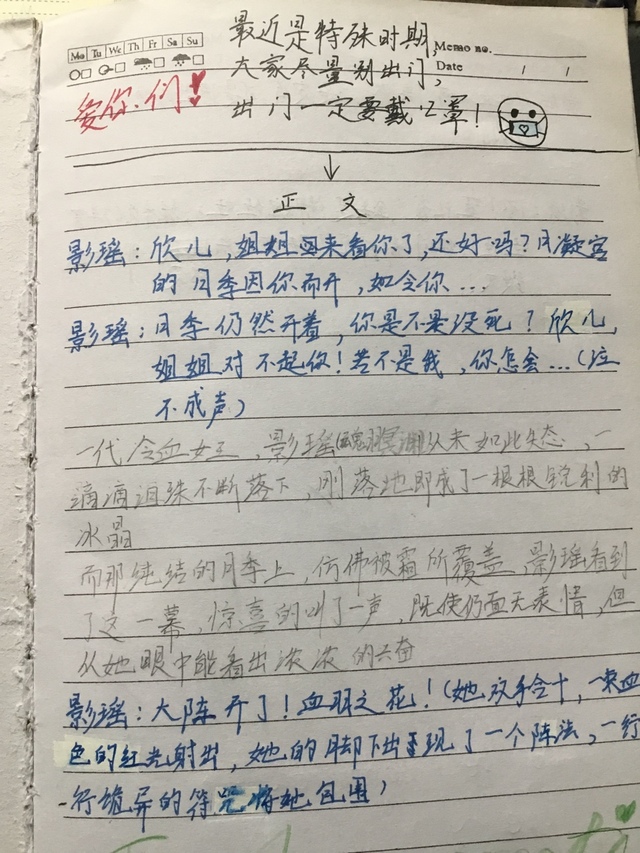 Mo Tu We Th Fr Sa Su
Memo no.
Date / /
最近是特殊时期,
大家尽量别出门,
出门一定要戴口罩!
爱你们!
正文
影瑶:欣儿,姐姐回来看你了,还好吗?月凝宫
的月季因你而开,如今你...
影瑶:月季仍然开着,你是不是没死?欣儿,
姐姐对不起你!若不是我,你怎会...(泣
不成声)
一代冷血女王,影瑶从未如此失态,一
滴滴泪珠不断落下,刚落地即成了一根根锐利的
冰晶
而那纯结的月季上,仿佛被霜所覆盖,影瑶看到
了这一幕,惊喜的叫了一声,既使仍面无表情,但
从她眼中能看出浓浓的兴奋
影瑶:大阵开了!血羽之花!(她双手合十,一束血
色的红光射出,她的脚下出现了一个阵法,一行
行诡异的符咒将她包围)